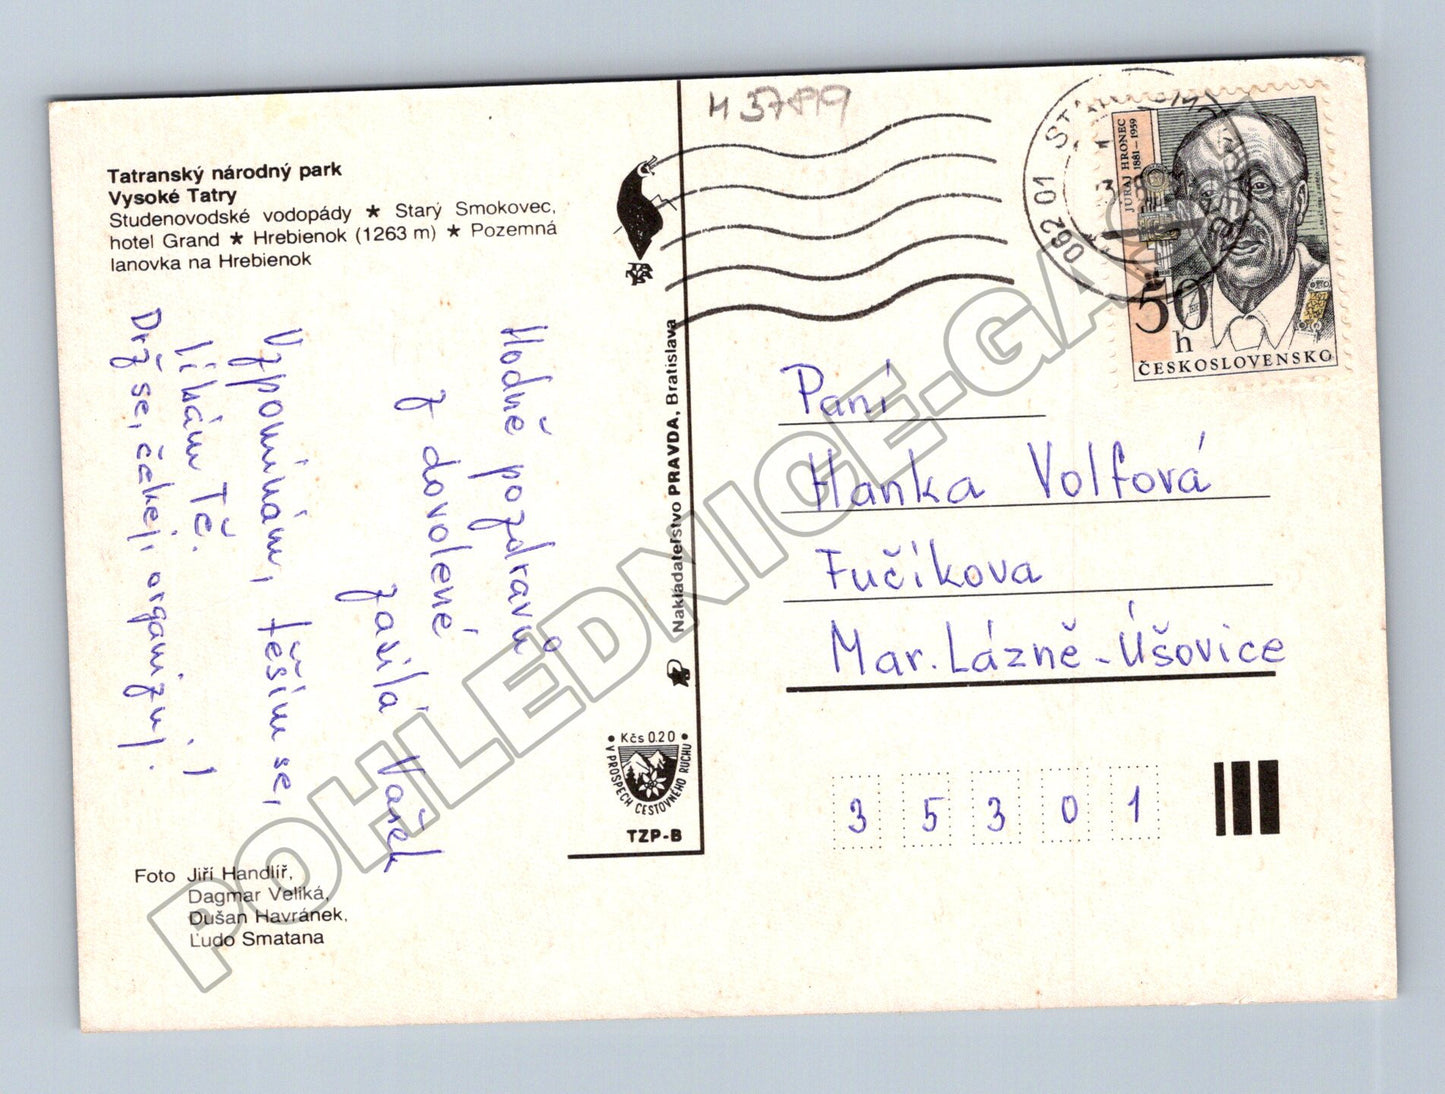 H 37819
Tatranský národný park
Vysoké Tatry
Studenovodské vodopády ★ Starý Smokovec,
hotel Grand ★ Hrebienok (1263 m) ★ Pozemná
lanovka na Hrebienok
Hodně pozdravů
z dovolené
zasílá Vašek
Vzpomínám, těším se,
líbám Tě.
Drž se, čekej, organizuj.
Foto Jiří Handlíř,
Dagmar Veliká,
Dušan Havránek,
Ľudo Smatana
Nakladateľstvo PRAVDA, Bratislava
• Kčs 0.20 •
V PROSPECH CESTOVNÉHO RUCHU
TZP-B
062 01
JURAJ HRONEC
1881–1959
50
h
ČESKOSLOVENSKO
Paní
Hanka Volfová
Fučíkova
Mar. Lázně - Úšovice
3 5 3 0 1
POHLEDNICE-GA